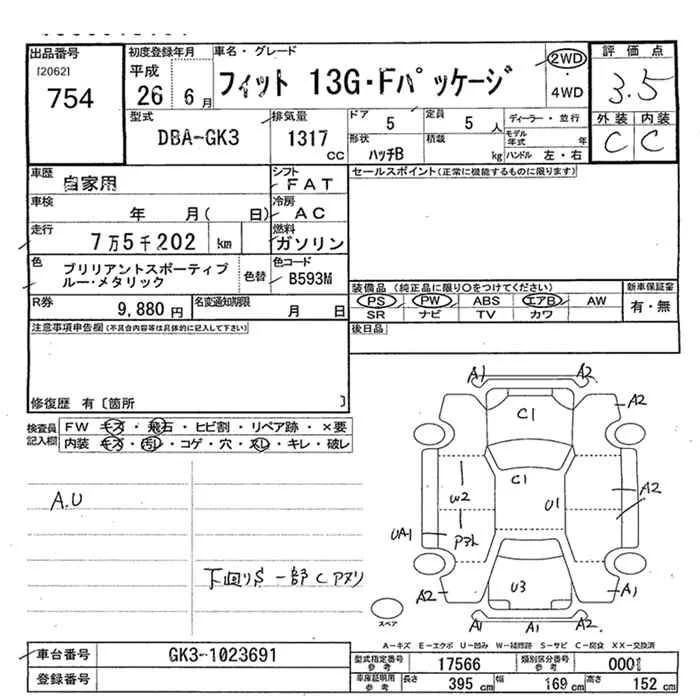 出品番号
[2062]
754
初度登録年月
平成
26 6月
車名・グレード
フィット 13G・Fパッケージ
2WD
・
4WD
評価点
3.5
外装 内装
C C
型式
DBA-GK3
排気量
1317
cc
ドア
5
定員
5 人
形状
ハッチB
積載
kg
ディーラー・並行
モデル
年式 年
ハンドル 左・右
車歴
自家用
シフト
FAT
車検
年 月( 日)
冷房
AC
走行
7万5千202 km
燃料
ガソリン
色
ブリリアントスポーティブ
ルー・メタリック
色替
色コード
B593M
R券
9,880 円
名変通知期限
月 日
セールスポイント(正常に機能するものに限ります)
装備品 (純正品に限り○をつけてください)
新車保証書
PS PW ABS エアB AW
SR ナビ TV カワ
有・無
後日品
注意事項申告欄(不具合内容等は具体的に記入して下さい)
修復歴 有〔箇所 〕
検査員
記入欄
FW キズ・飛石・ヒビ割・リペア跡・×要
内装 キズ・汚レ・コゲ・穴・スレ・キレ・破レ
A.U
下回りS 一部Cアヌリ
A1 A2
A2
C1
C1
W2
U1
A2
UA1
Pヌト
U3
A2
A1
A1 A1
スペア
A-キズ E-エクボ U-凹み W-補修跡 S-サビ C-腐食 XX-交換済
車台番号
GK3-1023691
登録番号
型式指定番号
参考
17566
類別区分番号
参考
000
車庫証明用
参考
長さ 395 cm
幅 169 cm
高さ 152 cm